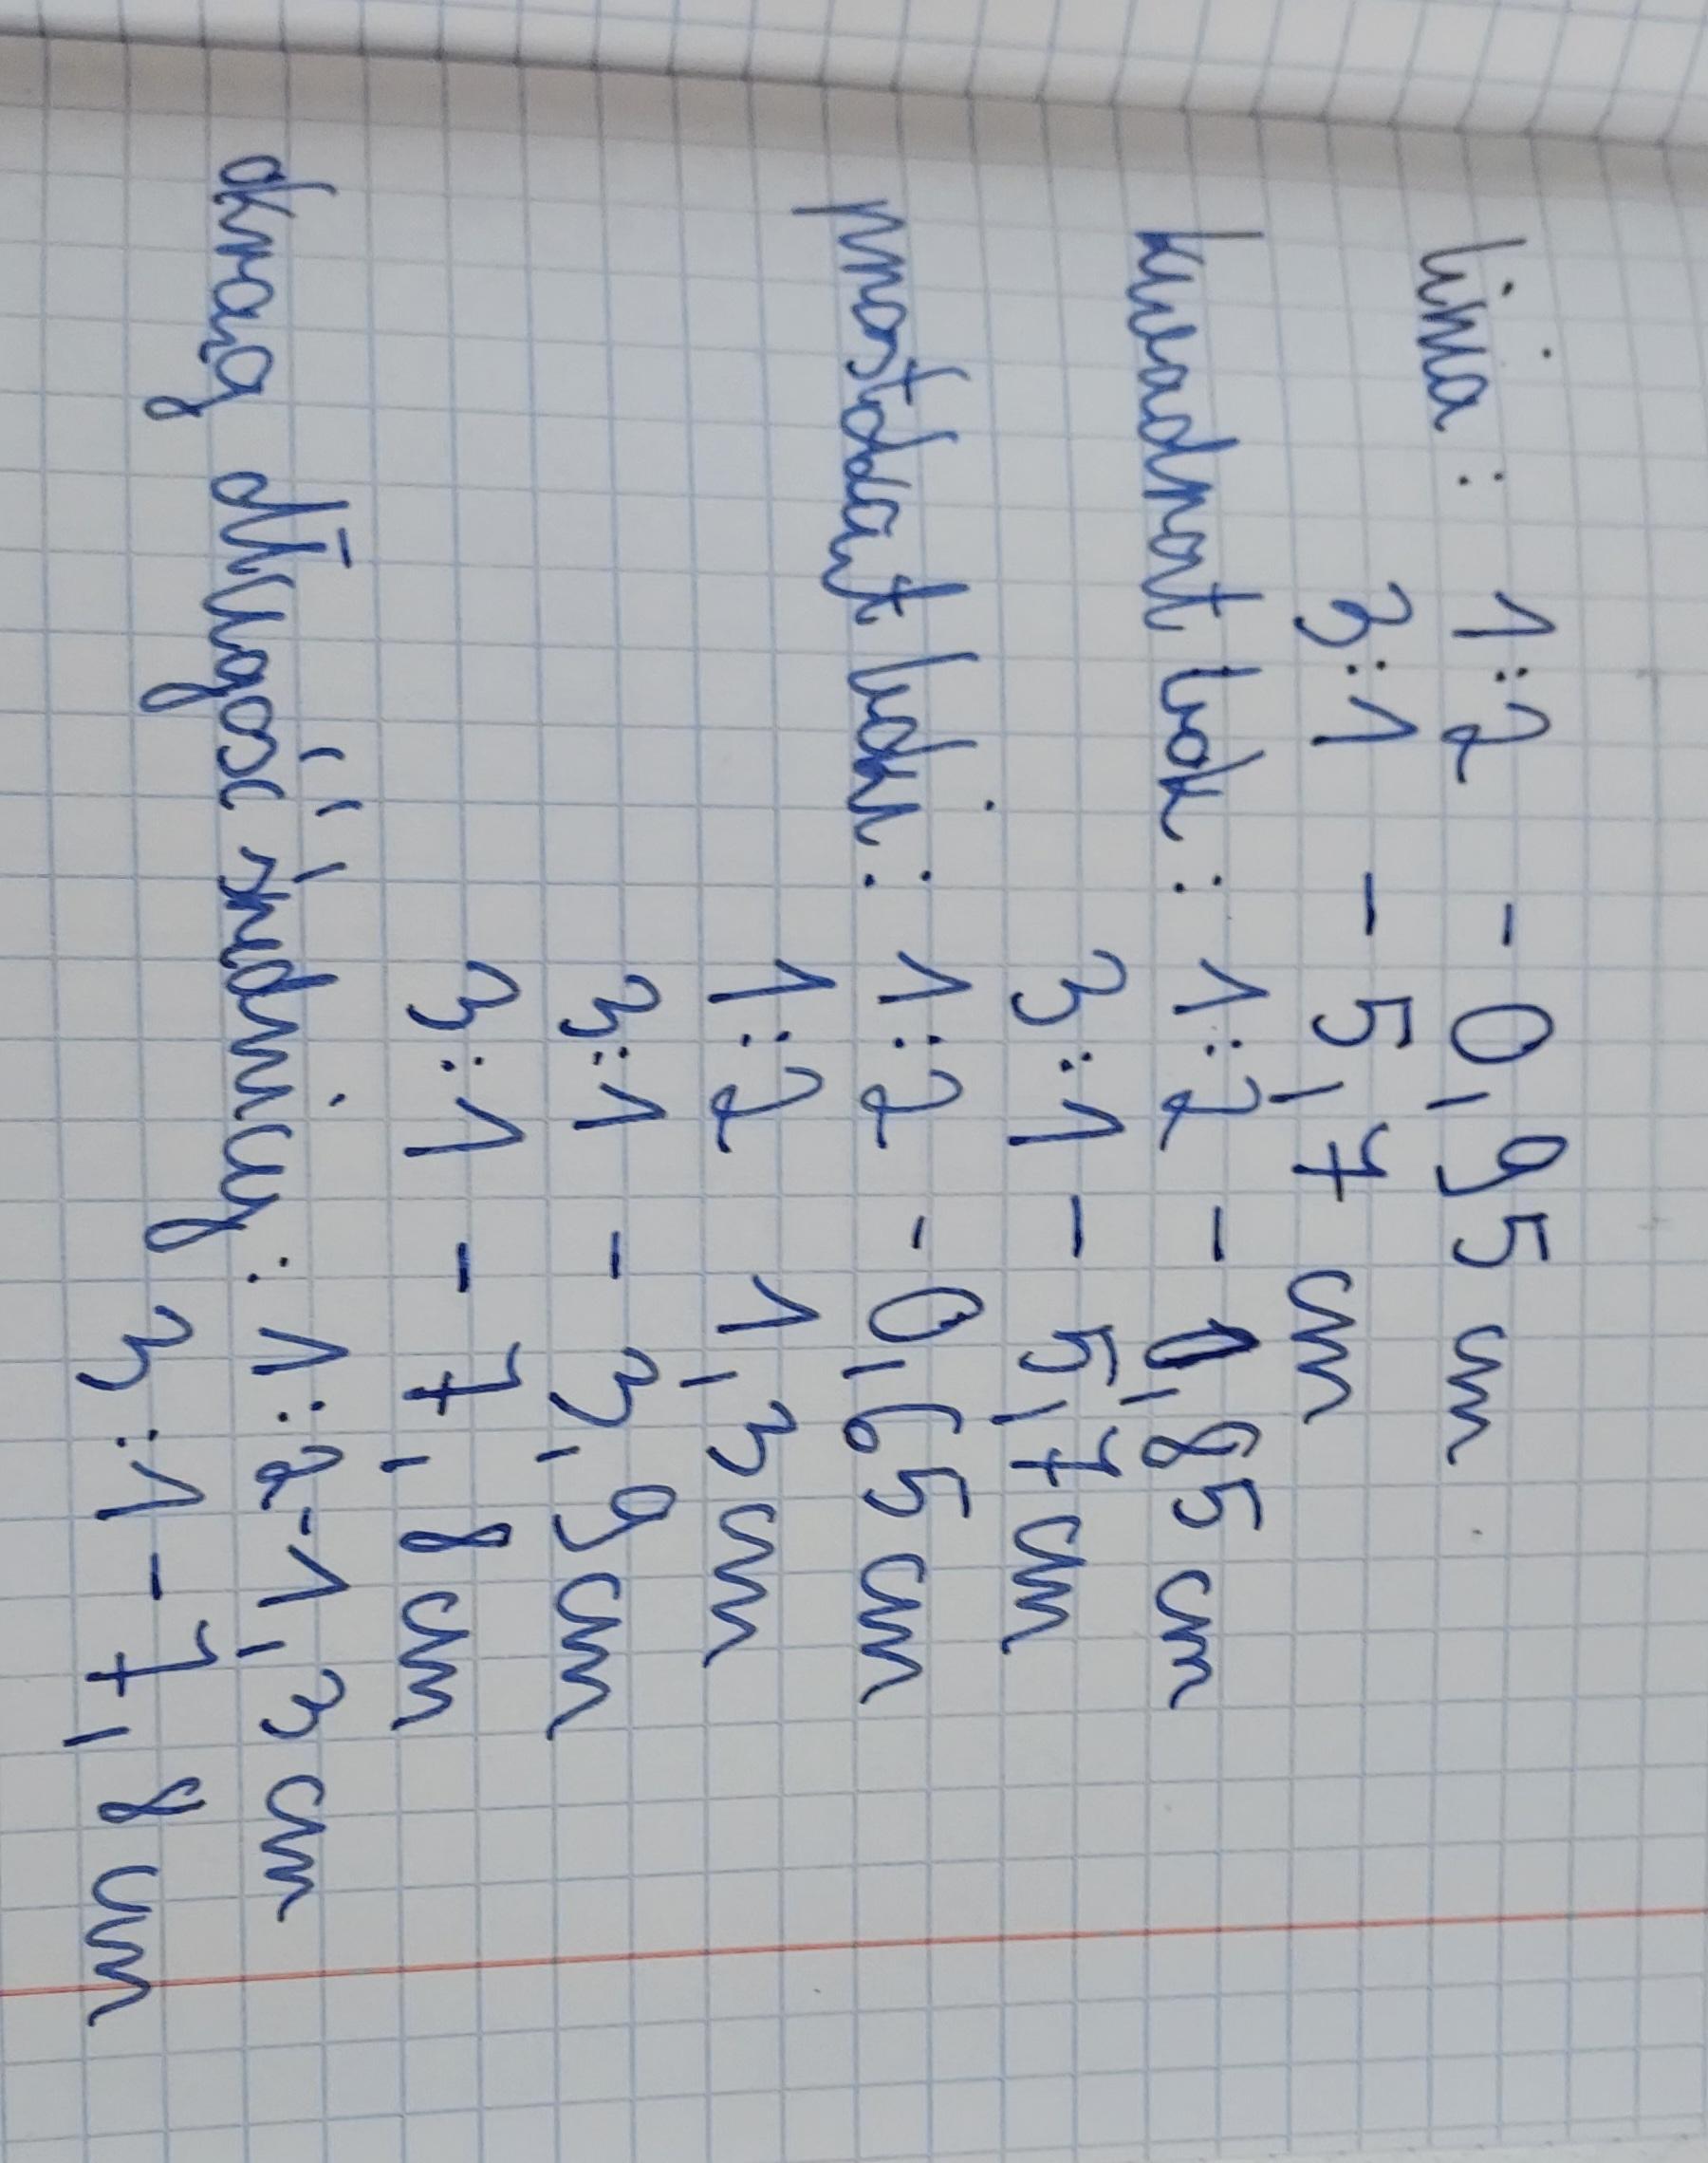 linia : 1:2 - 0,95 cm
3:1 - 5,7 cm
kwadrat bok : 1:2 - 0,85 cm
3:1 - 5,7 cm
prostokąt boki : 1:2 - 0,65 cm
1:2 1,3 cm
3:1 - 3,9 cm
3:1 - 7,8 cm
okrąg długość średnicy : 1:2 - 1,3 cm
3:1 - 7,8 cm